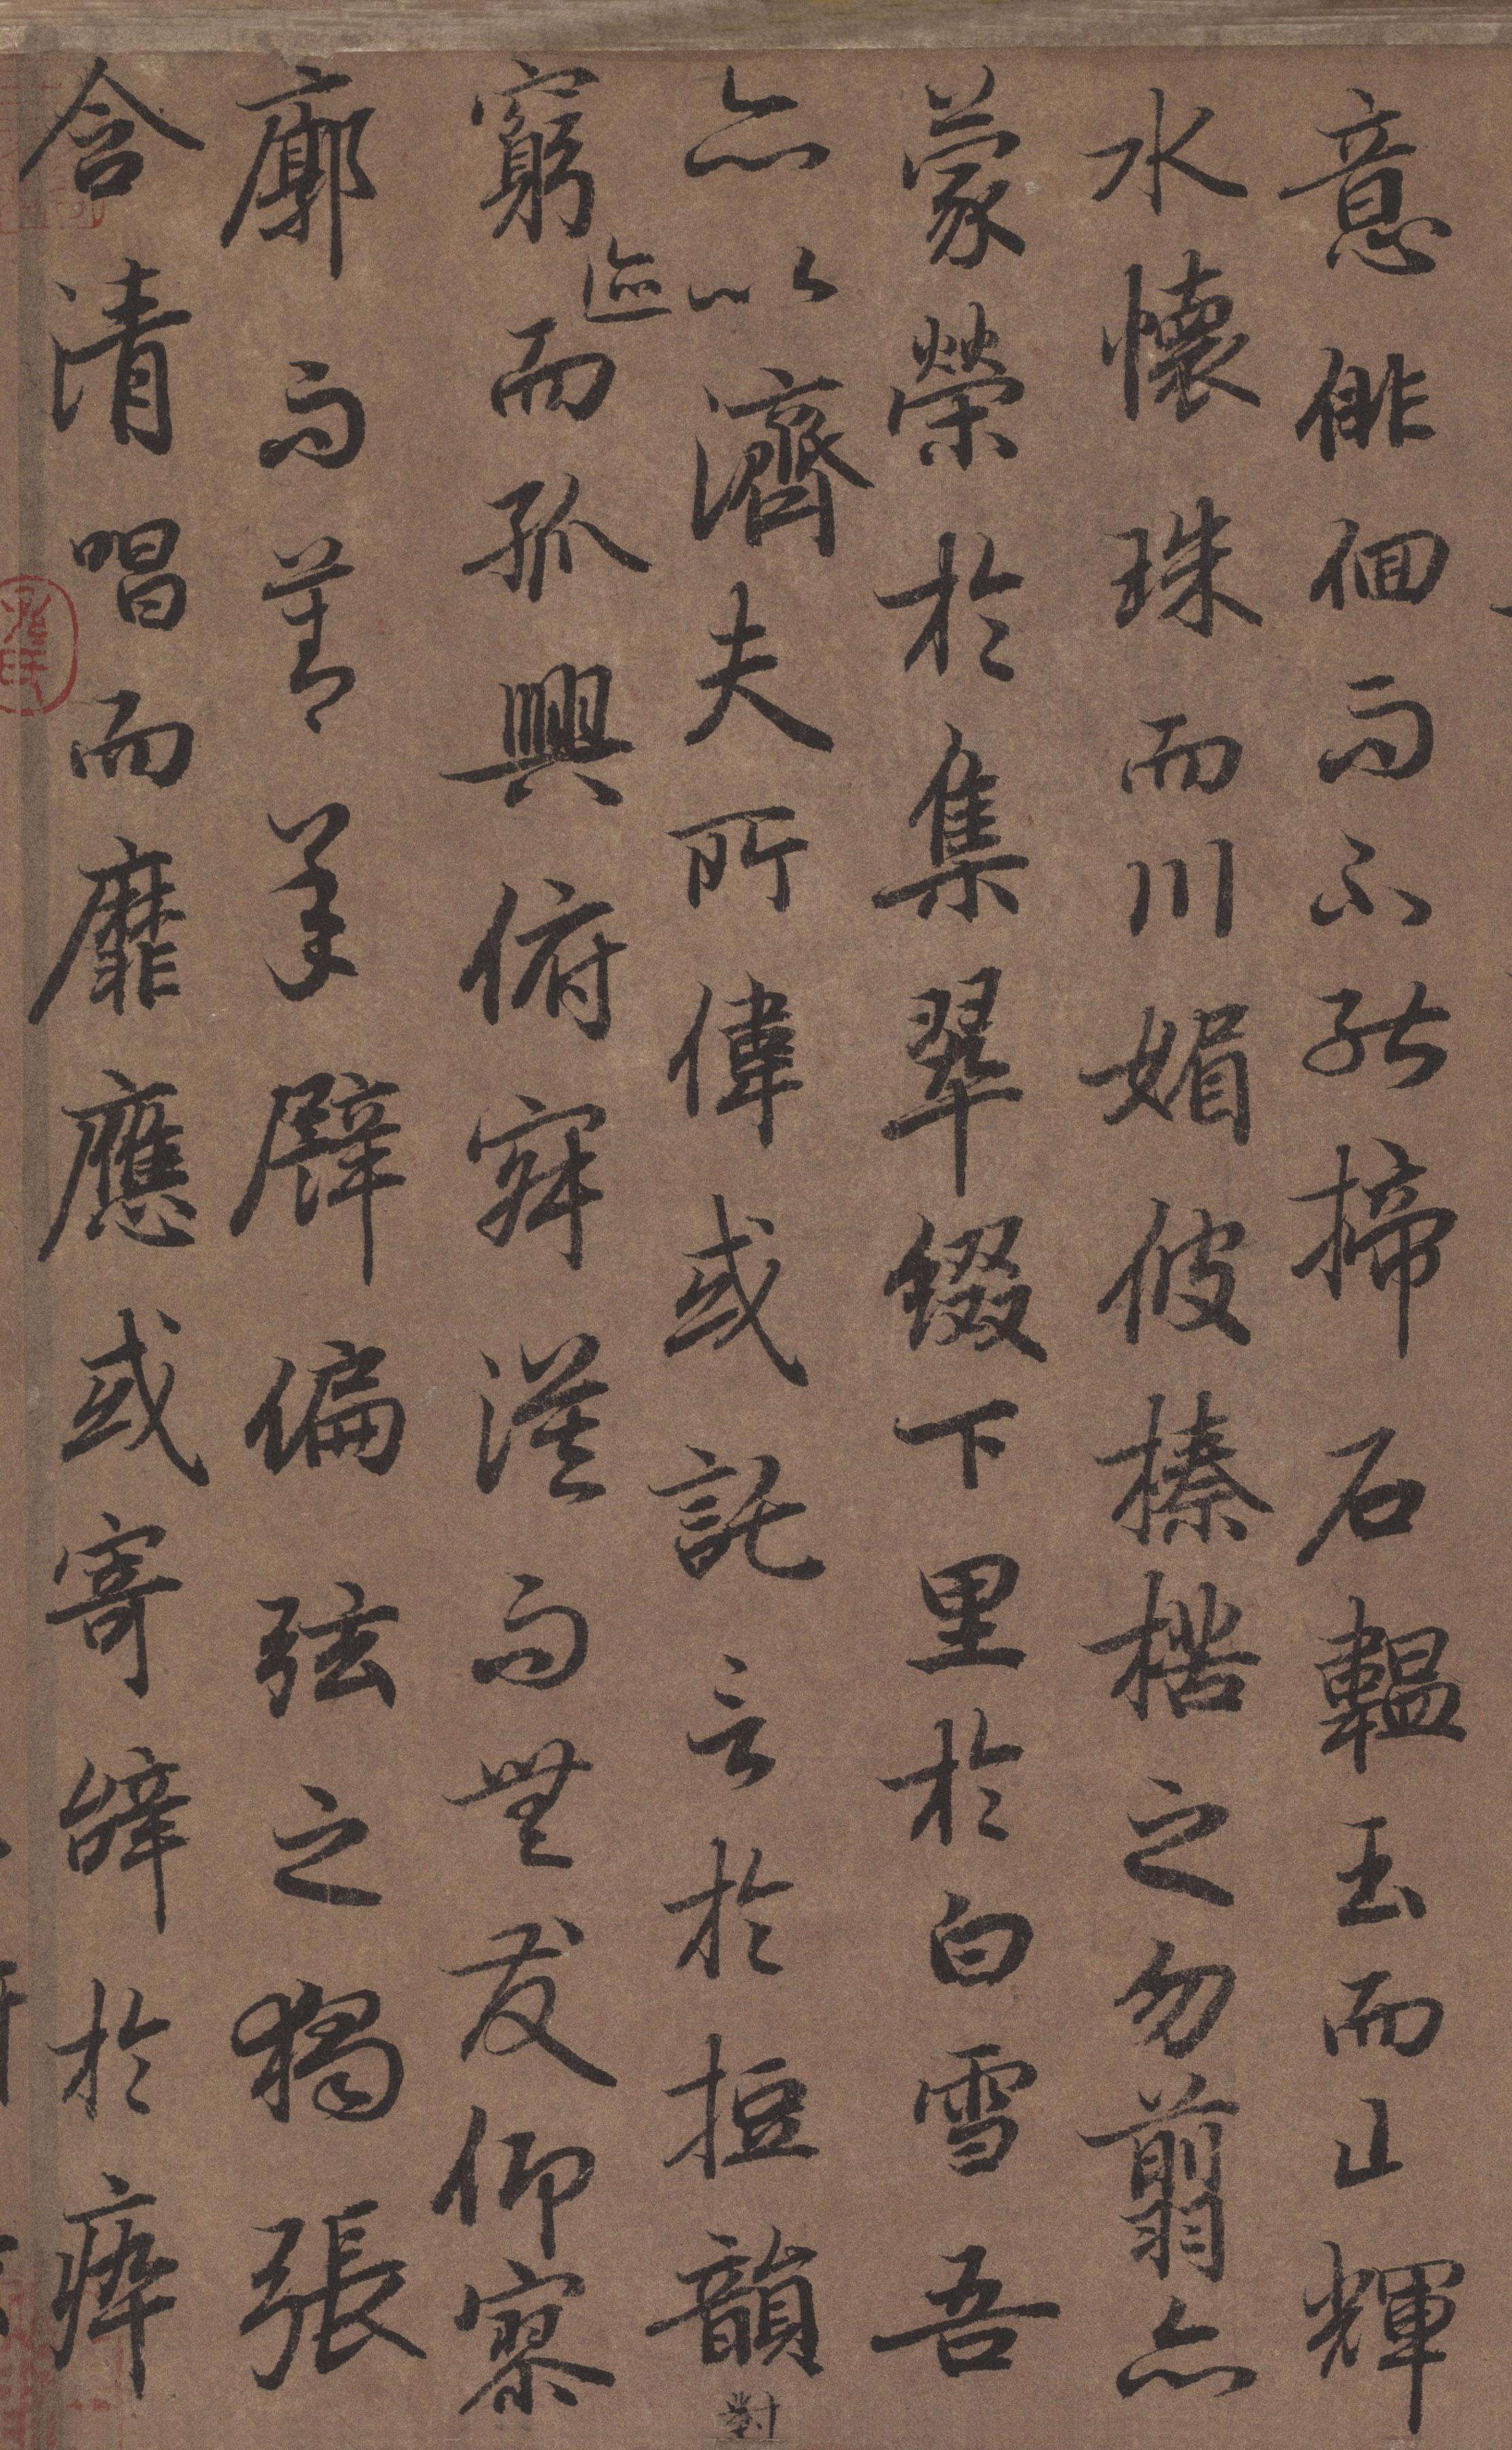 意俳佪而不能揥石韞玉而山輝
水懷珠而川媚彼榛楛之勿翦亦
蒙榮於集翠綴下里於白雪吾
亦以濟夫所偉或託言於短韻
對
窮迹而孤興俯寂漠而無友仰寥
廓而莫承譬偏弦之獨張
含清唱而靡應或寄辭於瘁